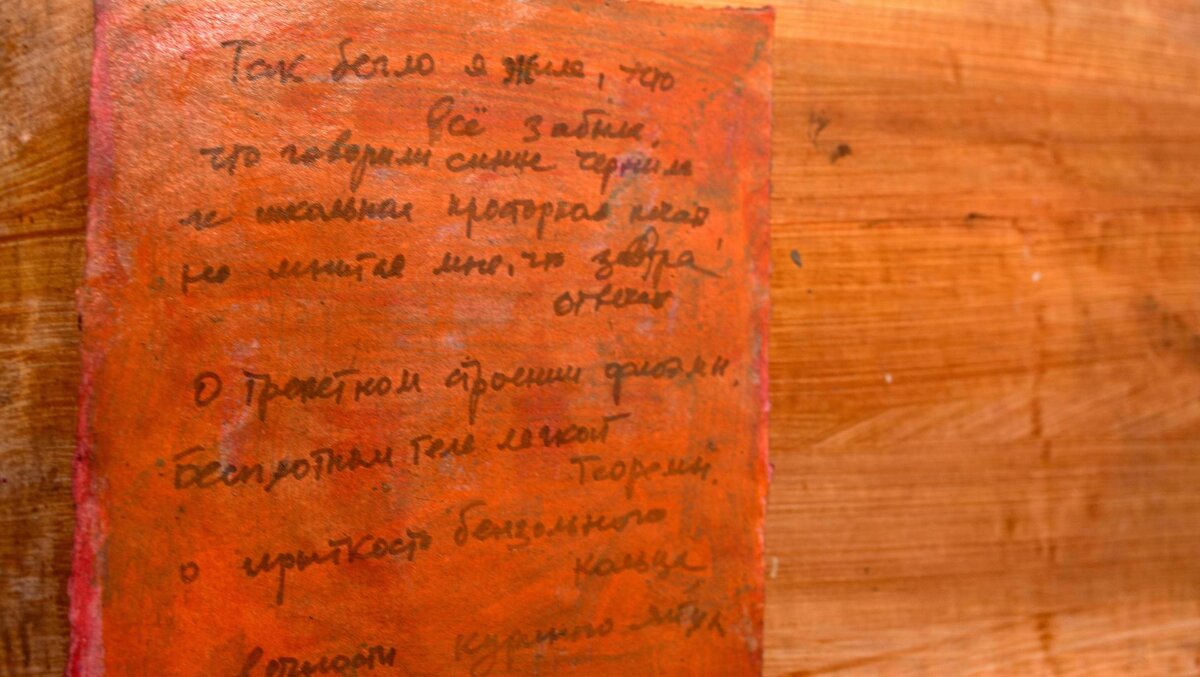 Так бегло я жила, что
всё забыла,
что говорили синие чернила
не школьная просторная печаль
не мнится мне, что завтра
отвечать
О трехстном строении флоэмы.
Бесплотным теле легкой
теоремы.
о прыткость бензольного
кольца
в области куриного яйца